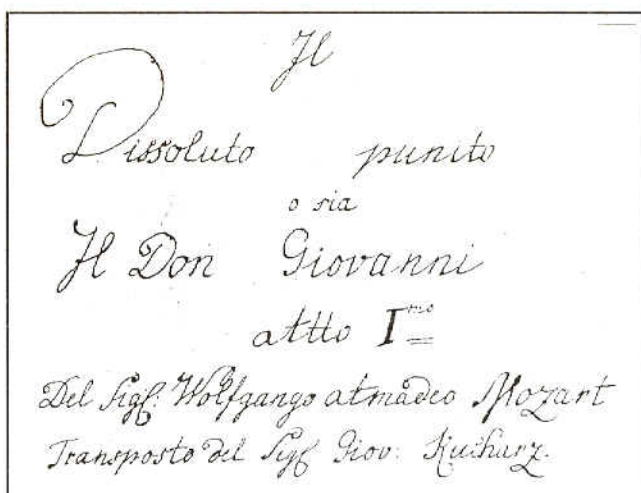 Il
Dissoluto punito
o sia
Il Don Giovanni
atto I.mo
Del Sigl: Wolfgango atmadeo Mozart
Transposto del Sigl Giov: Kucharz.